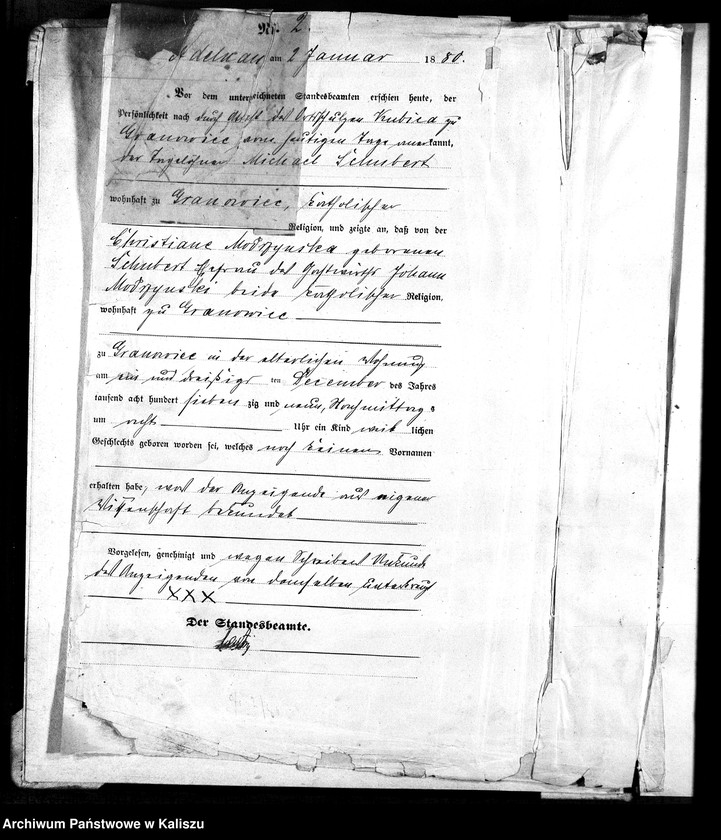 Nr. 2.
Adelnau am 2 Januar 1880.
Vor dem unterzeichneten Standesbeamten erschien heute, der
Persönlichkeit nach durch Attest des Ortsschulzen Kubica zu
Granowiec vom heutigen Tage anerkannt,
der Tagelöhner Michael Schubert
wohnhaft zu Granowiec, katholischer
Religion, und zeigte an, daß von der
Christiane Modrzynska geborenen
Schubert Ehefrau des Gastwirths Johann
Modrzynski beide katholischer Religion,
wohnhaft zu Granowiec
zu Granowiec in der elterlichen Wohnung
am ein und dreißigsten December des Jahres
tausend acht hundert siebenzig und neun, Nachmittags
um acht Uhr ein Kind weiblichen
Geschlechts geboren worden sei, welches noch keinen Vornamen
erhalten habe, was der Anzeigende aus eigener
Wissenschaft bekundet
Vorgelesen, genehmigt und wegen Schreibens Unkunde
des Anzeigenden von demselben unterkreuzt
XXX
Der Standesbeamte.
Archiwum Państwowe w Kaliszu